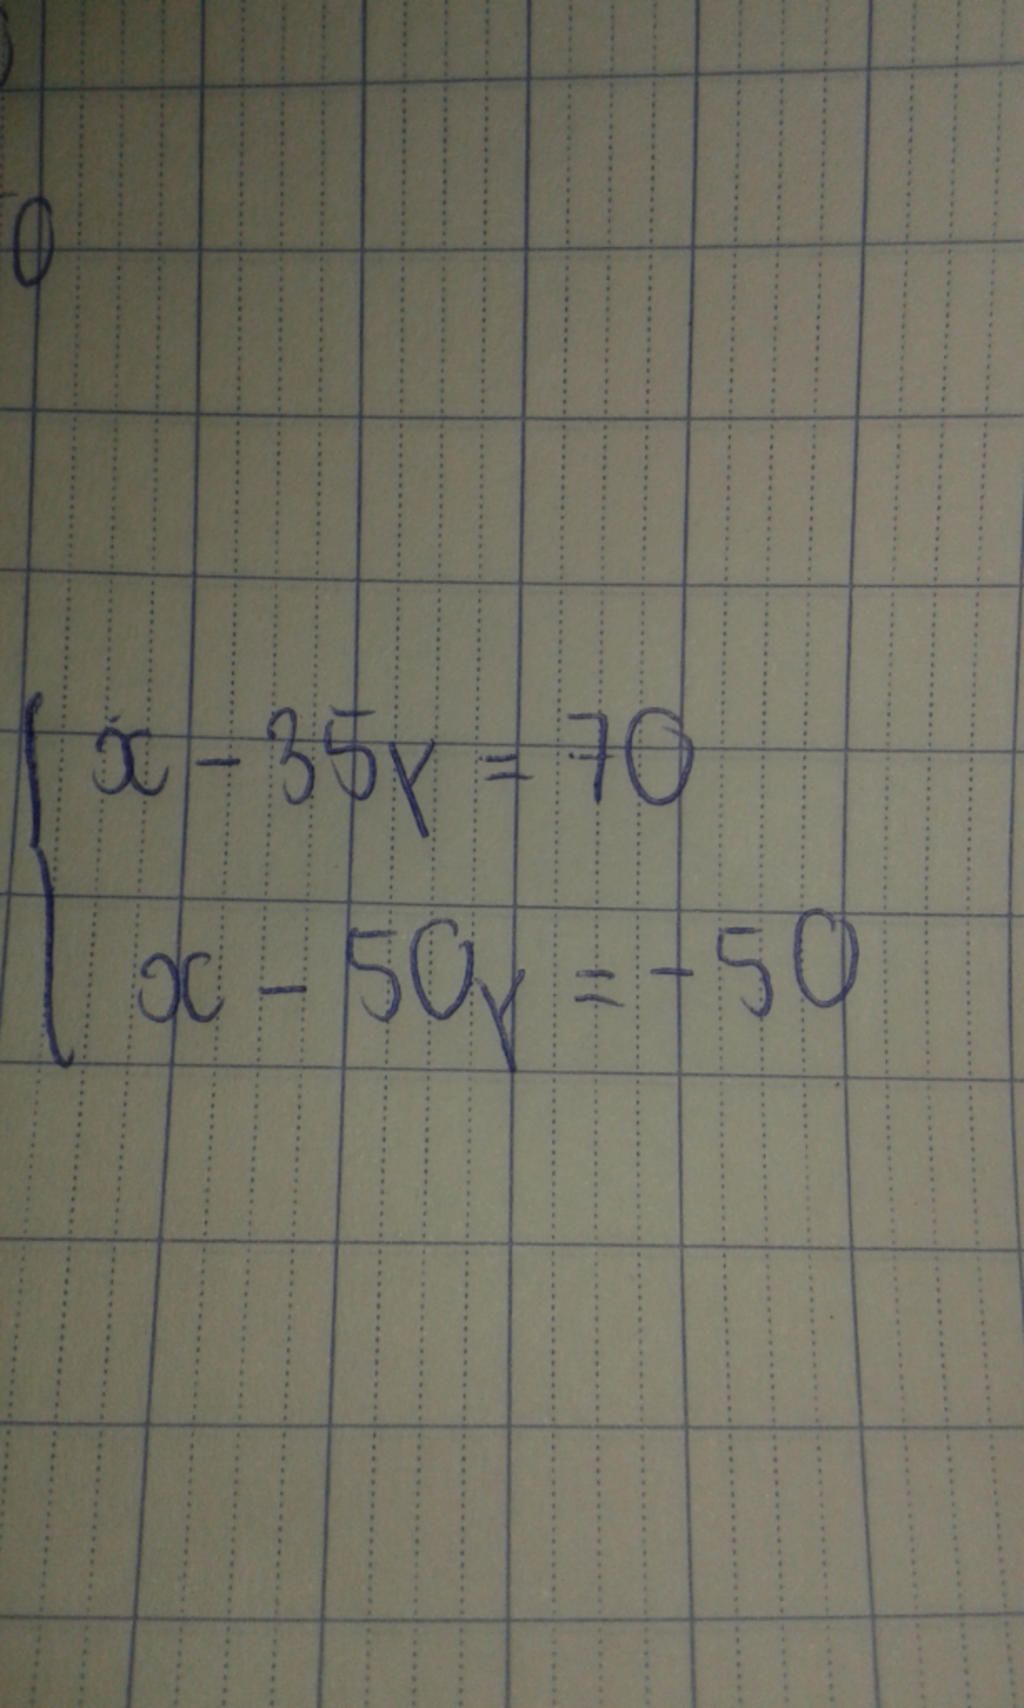 0
x - 35y = 70
x - 50y = -50